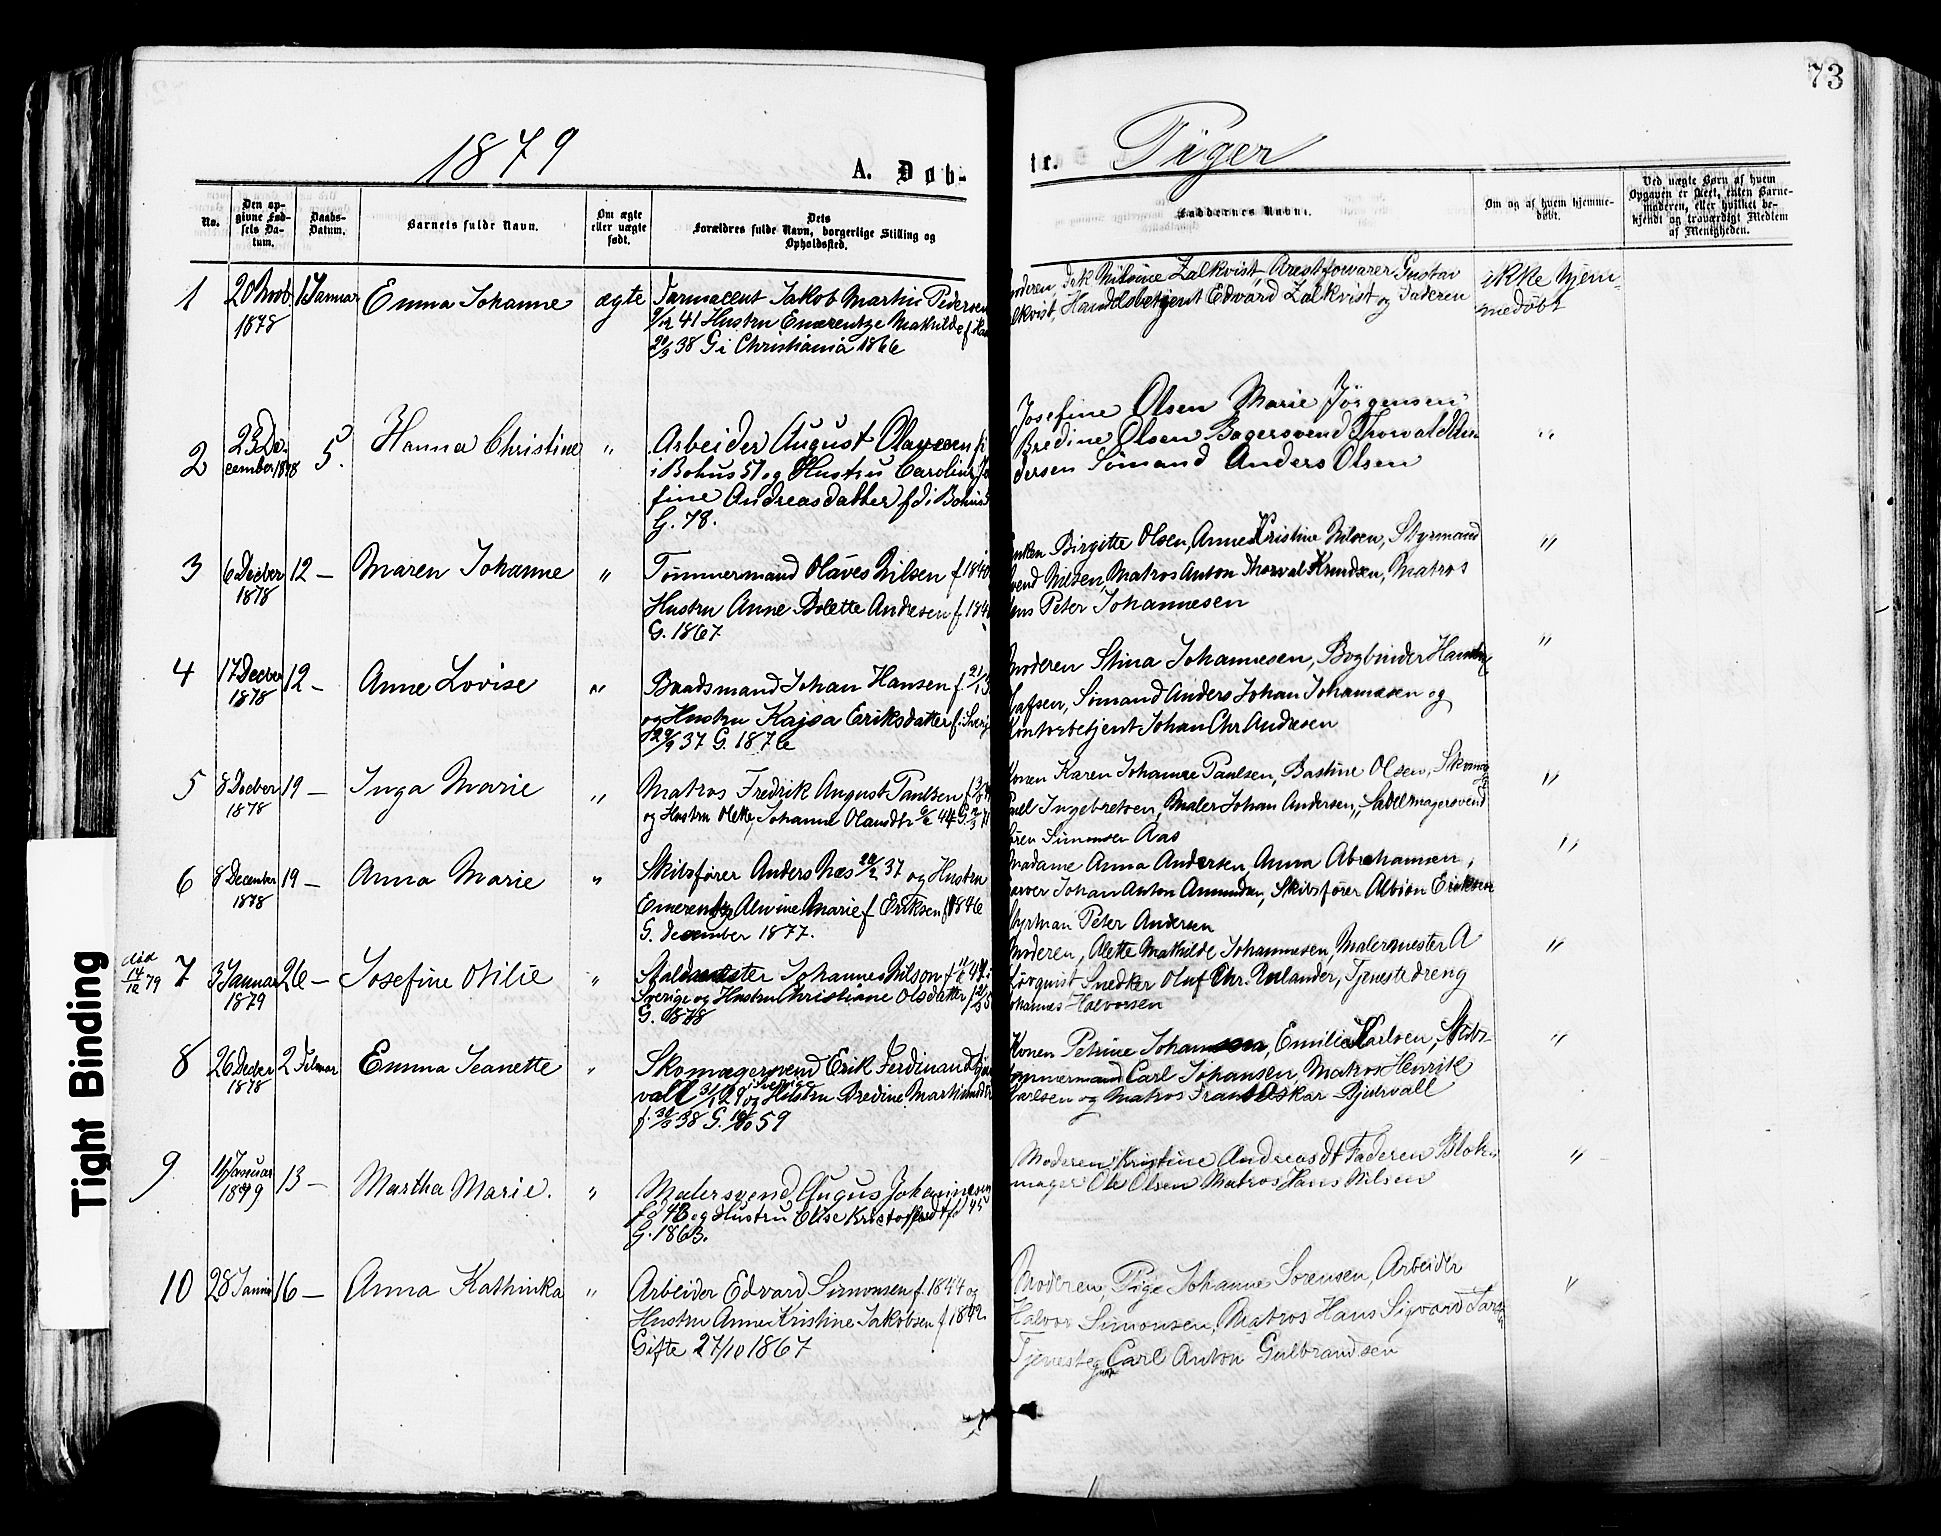 73
1879
A. Døb-
tr. Piger
No.
Den op-
givne Fød-
sels Da-
tum.
Daabs-
Datum.
Barnets fulde Navn.
Om ægte
eller uægte
født.
Dets
Forældres fulde Navn, borgerlige Stilling og
Opholdssted.
Faddernes Navn.
Om og af hvem hjemme-
døbt.
Ved uægte Børn af hvem
Opgaven er skeet, enten Barne-
moderen, eller hvilket be-
kjendt og troværdigt Medlem
af Menigheden.
1 20 Novb 1 Januar Emma Johanne ægte Jakob Martin Pedersen
1878 41 Hustru Emerentze Mathilde f
38 G i Christiania 1866
Zalkvist, Arrestforvarer Gustav
Handelsbetjent Edvard Zalkvist og Faderen
ikke hjem-
medøbt
2 23 De- 5. Hanna Christine " Arbeider August Olavesen
cember 1878 i Bohus 51 og Hustru Caroline
fine Andreasdatter fd i Bohus
G. 78.
Josefine Olsen Marie Jörgensen
Bredine Olsen Bagersvend Thorvald An-
dersen Sömand Anders Olsen "
3 6 Decber 12 — Maren Johanne " Tömmermand Olaves Nilsen f 1840
1878 Hustru Anne Bolette Andresen f 184
G. 1867
Birgitte Olsen, Anne Kristine Nilsen, Styrmand
Nilsen, Matros Anton Thorval Knudsen, Matros
Peter Johannesen "
4 17 Decber 12 — Anne Lovise " Baadsmand Johan Hansen f 21/1
1878 og Hustru Kajsa Eriksdatter f i Sverig
29/9 37 G. 1876
Moderen Stina Johannesen, Bogbinder
Sömand Anders Johan Johannesen og
Kontorbetjent Johan Chr Andresen "
5 8 Decber 19 — Inga Marie " Matros Fredrik August Paulsen f
1878 og Hustru Olette Johanne 44 G.
Konen Karen Johanne Paulsen, Bastine Olsen,
Ingebretsen, Maler Johan Andersen, Sadelmagersvend
Sören Simonsen Aas "
6 8 December 19 — Anna Marie " Skibsfører Anders Næs 37 og Hustru
1878 Emerentze Alvine Marie f Eriksen f 1846
G. december 1877.
Madame Anna Andersen, Anna Abrahamsen,
Johan Anton Amundsen, Skibsfører Albion Eriksen
Styrman Peter Andersen "
död
14/12 79 7 3 Januar 26 — Josefine Otilie " Staldmester Johannes Nilson f
1879 Sverige og Hustru Christiane Olsdatter f
G. 1878
Moderen, Alette Mathilde Johannesen, Malermester A
Snedker Oluf Chr. Rulander, Tjenestedreng
Johannes Halvorsen "
8 26 Decbr 2 Februar Emma Jeanette " Skomagersvend Erik Ferdinand
1878 vall i Sverige 31/1 29 og Hustru Bredine
f. 38 G. 59
Konen Petrine Johansen, Emilie Karlsen, Skibs
tömmermand Carl Johansen, Matros Henrik
Carlsen og Matros Frants Oskar Bjurvall "
9 11 Januar 13 — Martha Marie. " Malersvend August Johannesen
1879 43 og Hustru Elise 45
G. 1863.
Moderen, Kristine Andreasdt Faderen Blok-
mager Ole Olsen Matros Hans Nilsen "
10 28 Januar 16 — Anna Kathinka " Arbeider Edvard Simonsen f. 1844 og
Hustru Anne Kristine Jakobsen f 1842
Gifte 27/10 1867
Moderen, Pige Johanne Sorensen, Arbeider
Halvor Simonsen, Matros Hans Sigvard
Tjeneste Carl Anton Gulbrandsen "
Tight Binding